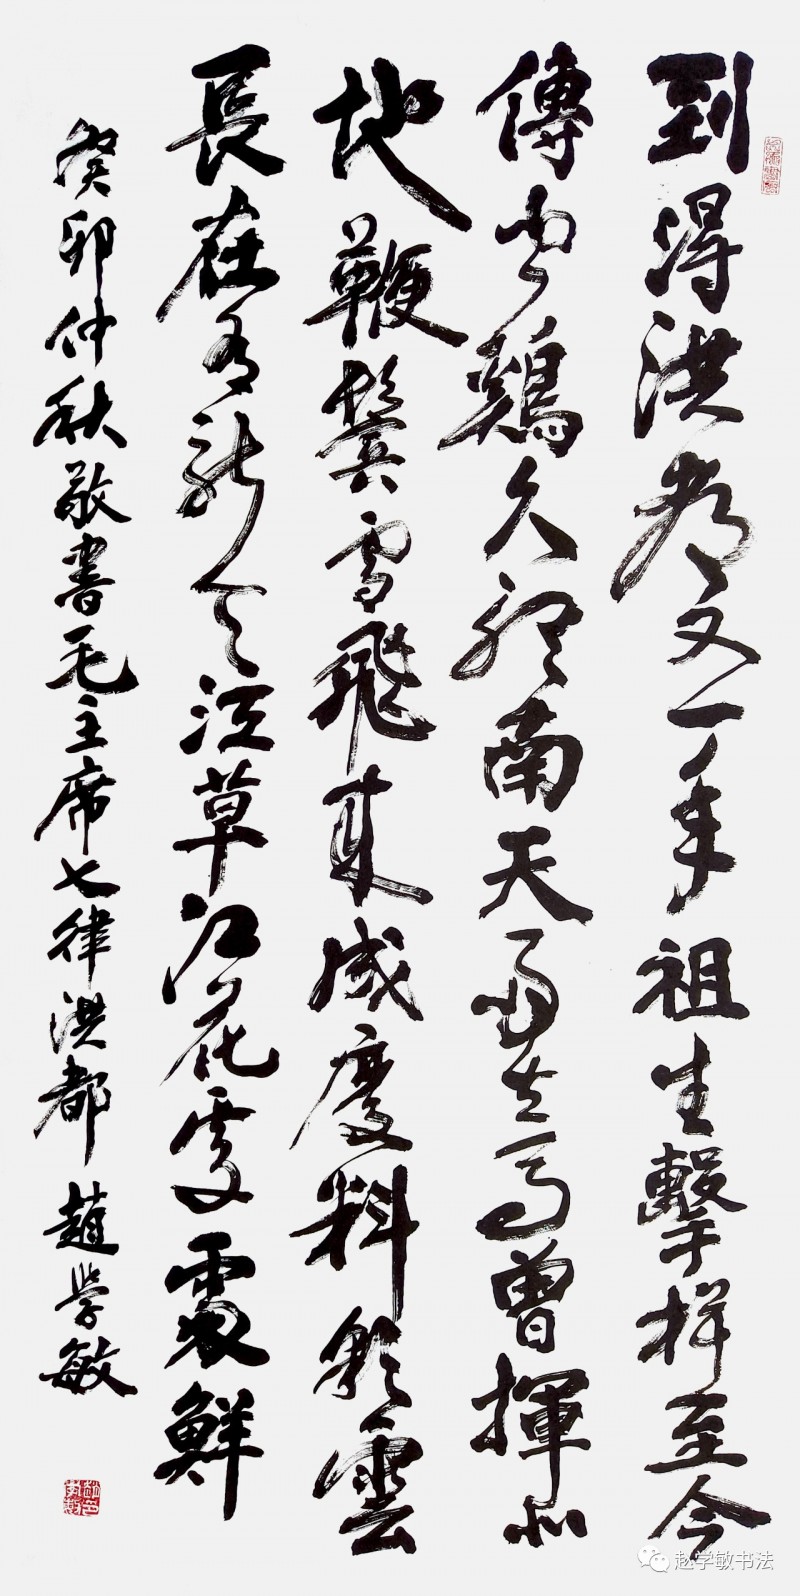 到得洪都又一年祖生擊样至今
傳聞鷄久聽南天雨立馬曾揮北
地鞭鬢雪飛來成廢料彩雲
長在有新天江草江花處處鮮
癸卯仲秋敬書毛主席七律洪都 趙學敏
赵学敏书法